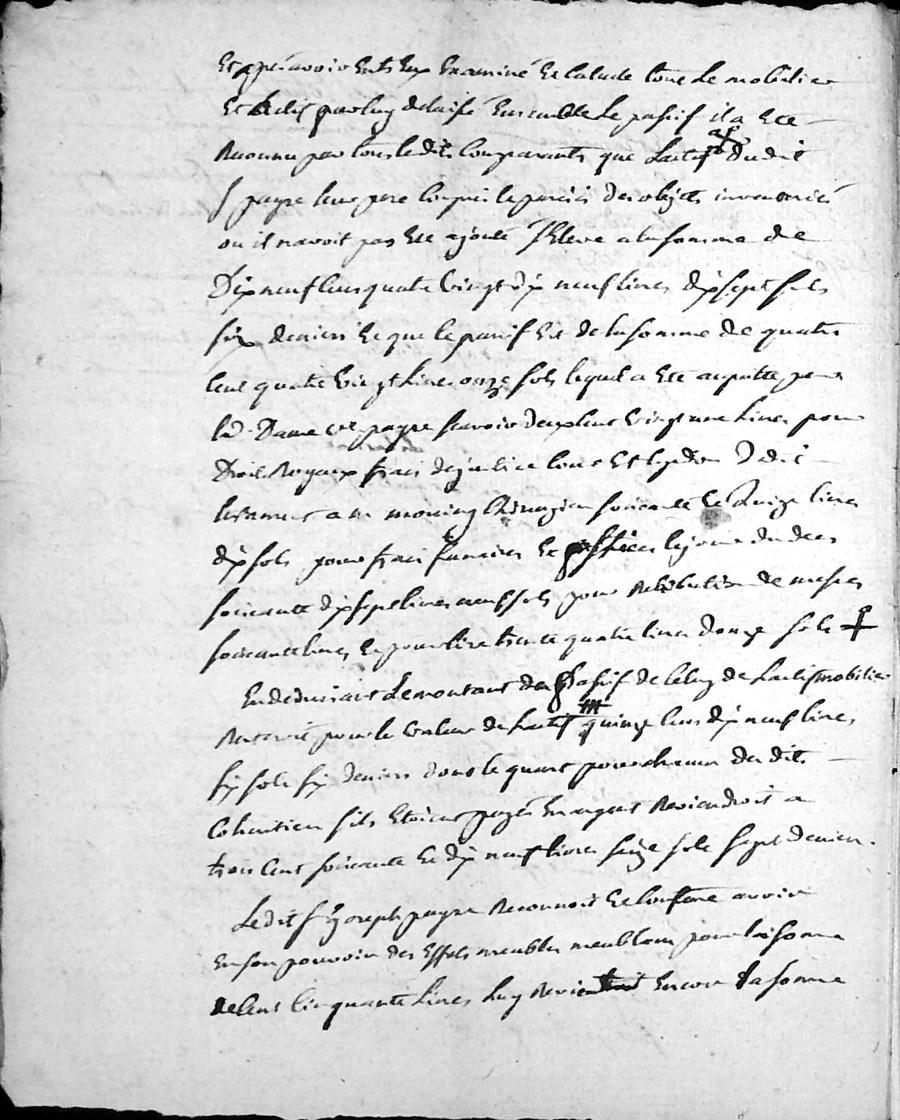 Et apres avoir Entr Eux Examiné Et calculé tout Le mobilier
Et par luy delaissé Ensemble Le passif il a Eté
Reconnu par tous lesdits Comparants que Lactif dudit
S payre leur pere Compris le prix des objets inventoriés
ou il n'avoit pas Eté ajouté s'Eleve a la somme de
Dix neuf Cens quatre Vingt dix neuf livres dix sept sols
six deniers Et que le passif Est de la somme de quatre
Cent quatre Vingt Livres onze sols lequel a Eté acquitté par
lad. Dame ve payre scavoir deux Cent Vingt une Livres pour
Droit Royaux frais de justice Et dudit
testament a mr Chirurgien soixante Et quinze livres
dix sols pour frais funeraires Et le jour du deces
soixante dix sept livres neuf sols pour Retribution de messes
soixante livres, Et pour Cire trente quatre livres douze sols
En deduisant Le montant du passif de Celuy de Lactif mobilier
Resteroit pour la Valeur de Lactif quinze Cens dix neuf livres
six sols six deniers dont le quart pour chacun des dits
Coheritiers sils Etoient payés En argent Reviendroit a
trois Cent soixante Et dix neuf livres seize sols sept deniers.
Ledit s joseph payre Reconnoit Et Confesse avoir
En son pouvoir des Effets meubles meublans pour la somme
de Cent Cinquante Livres Luy Encore la somme